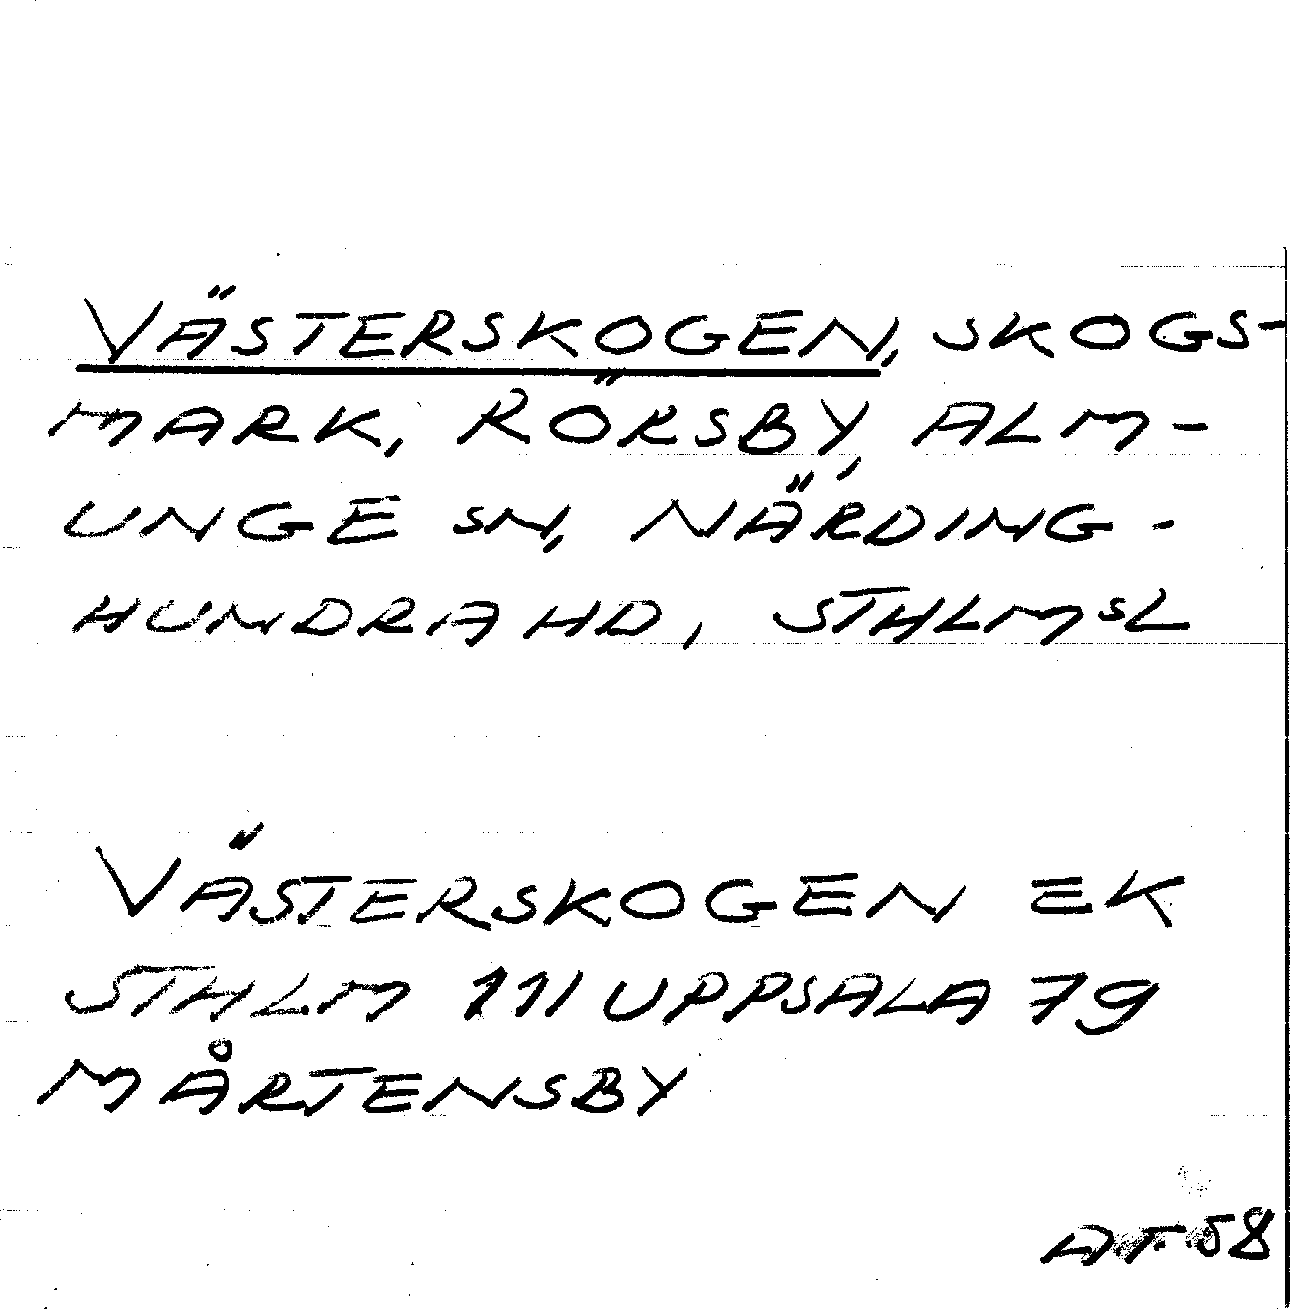 VÄSTERSKOGEN, SKOGS-
MARK, RÖRSBY, ALM-
UNGE SN, NÄRDING-
HUNDRA HD, STHLMSL
VÄSTERSKOGEN EK
STHLM 111 UPPSALA 79
MÅRTENSBY
AT. 58